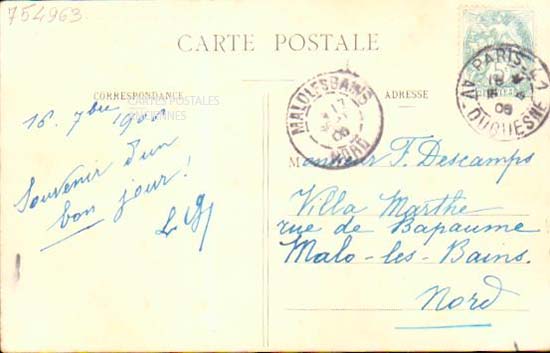 754963
CARTE POSTALE
CORRESPONDANCE
ADRESSE
CARTES POSTALES
ANCIENNES
MALO LES BAINS
17
06
NORD
PARIS 47
AV. DUQUESNE
06
16. 7bre
Souvenir d'un
bon jour!
Monsieur F. Descamps
Villa Marthe
rue de Bapaume
Malo-les-Bains.
Nord